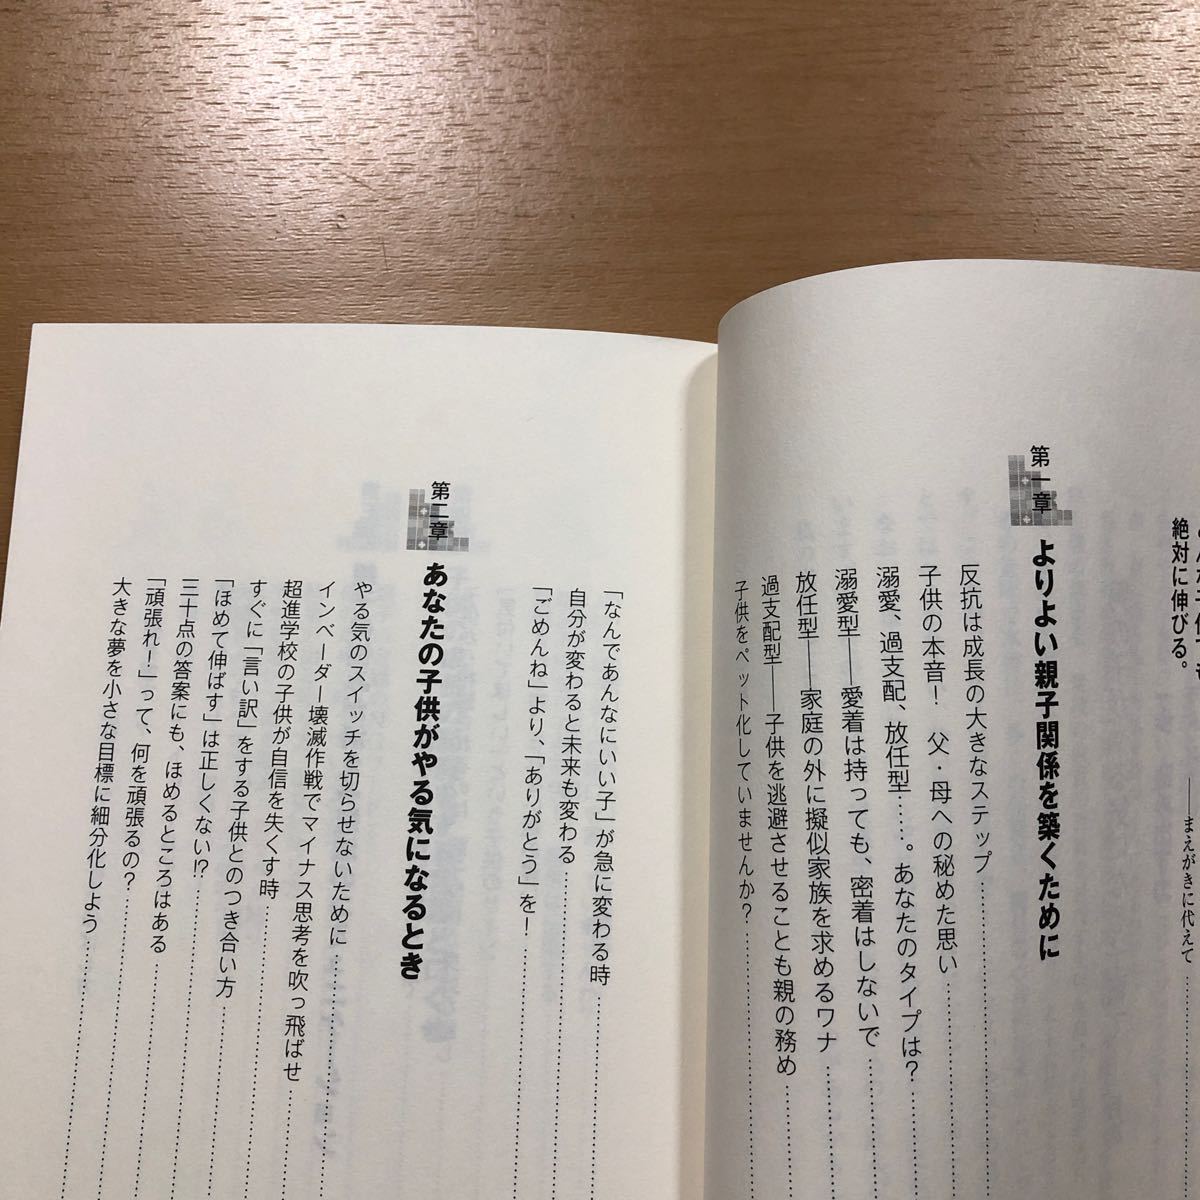 絶対に伸びる。
――まえがきに代えて
第一章
よりよい親子関係を築くために
反抗は成長の大きなステップ
子供の本音! 父・母への秘めた思い
溺愛、過支配、放任型……。あなたのタイプは?
溺愛型――愛着は持っても、密着はしないで
放任型――家庭の外に擬似家族を求めるワナ
過支配型――子供を逃避させることも親の務め
子供をペット化していませんか?
「なんであんなにいい子」が急に変わる時
自分が変わると未来も変わる
「ごめんね」より、「ありがとう」を!
第二章
あなたの子供がやる気になるとき
やる気のスイッチを切らせないために
インベーダー壊滅作戦でマイナス思考を吹っ飛ばせ
超進学校の子供が自信を失くす時
すぐに「言い訳」をする子供とのつき合い方
「ほめて伸ばす」は正しくない!?
三十点の答案にも、ほめるところはある
「頑張れ!」って、何を頑張るの?
大きな夢を小さな目標に細分化しよう